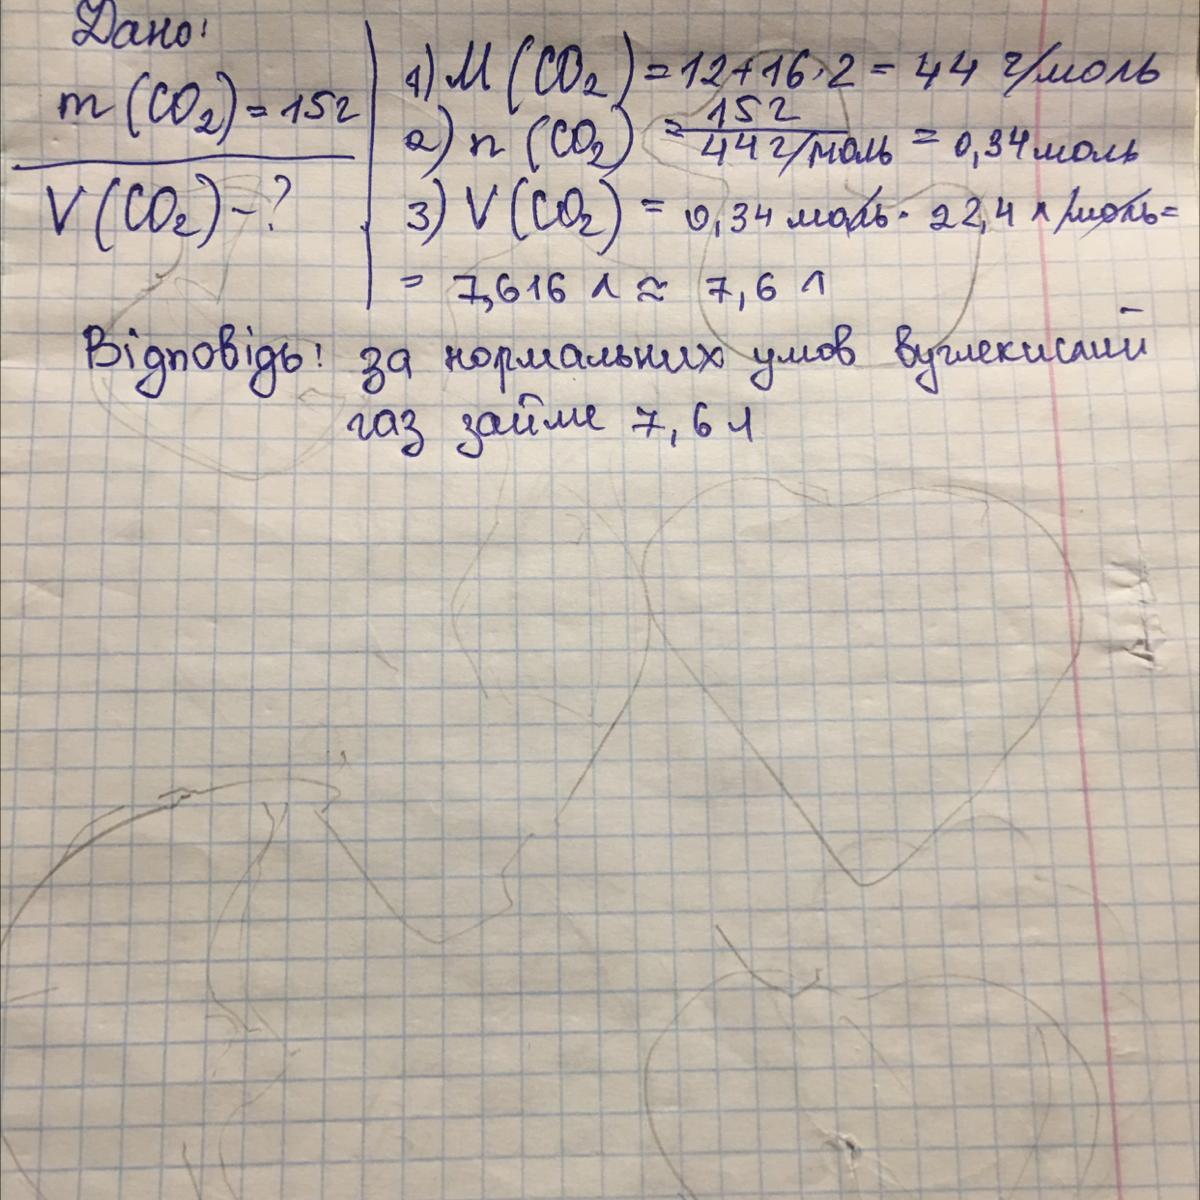 Дано:
m (CO₂) = 15г
V (CO₂) - ?
1) M (CO₂) = 12+16·2 = 44 г/моль
2) n (CO₂) = 15г / 44 г/моль = 0,34 моль
3) V (CO₂) = 0,34 моль · 22,4 л/моль =
= 7,616 л ≈ 7,6 л
Відповідь: за нормальних умов вуглекислий
газ займе 7,6 л